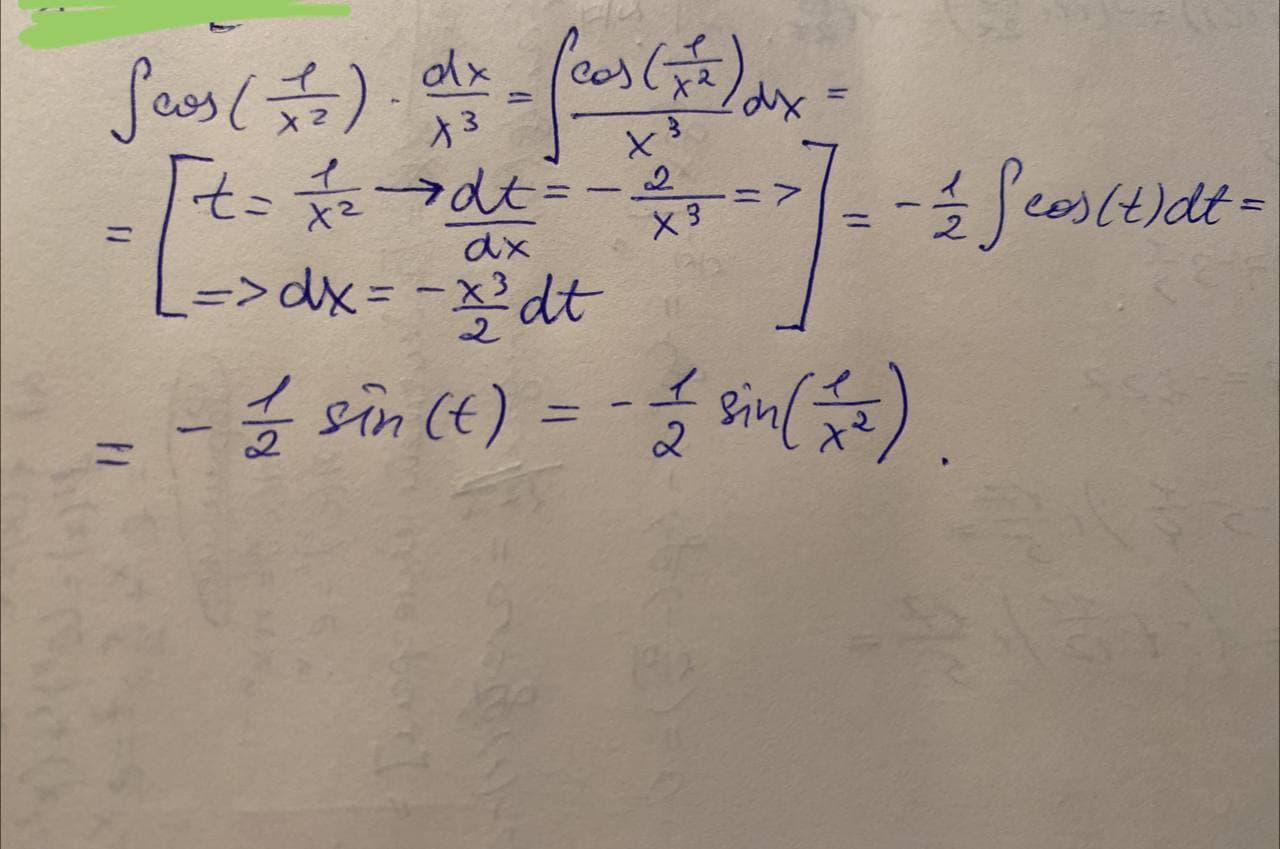 ∫cos(1/x²) · dx/x³ = ∫cos(1/x²)/x³ dx =
= [t = 1/x² → dt/dx = -2/x³ =>
=> dx = -x³/2 dt] = -1/2 ∫cos(t)dt =
= -1/2 sin(t) = -1/2 sin(1/x²).